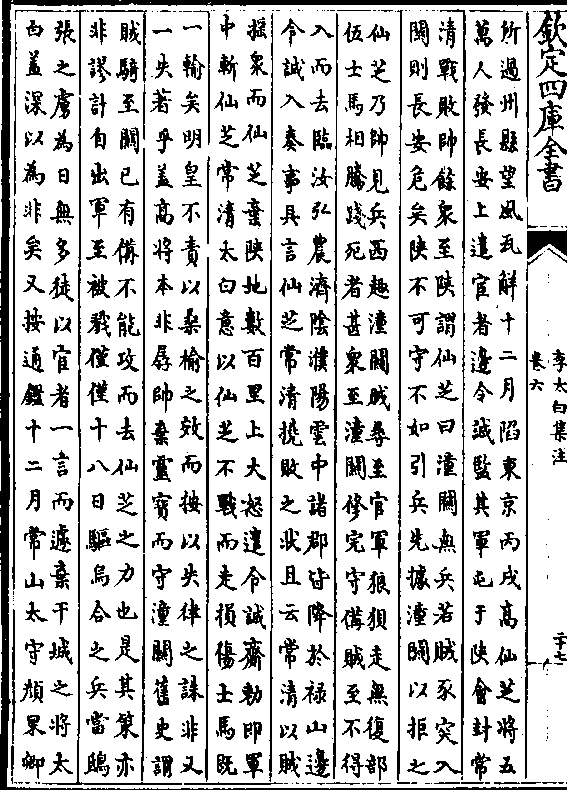 欽定四庫全書
李太白集注
卷六
二十七
所過州縣望風瓦解十二月陷東京丙戌高仙芝將五
萬人發長安上遣宦者邊令誠監其軍屯于陜會封常
清戰敗帥餘衆至陜謂仙芝曰潼關無兵若賊豕突入
關則長安危矣陜不可守不如引兵先據潼關以拒之
仙芝乃帥見兵西趣潼關賊尋至官軍狼狽走無復部
伍士馬相騰踐死者甚衆至潼關修完守備賊至不得
入而去臨汝弘農濟陰濮陽雲中諸郡皆降於禄山邊
令誠入奏事具言仙芝常清撓敗之狀且云常清以賊
摇衆而仙芝棄陜地數百里上大怒遣令誠齎勅即軍
中斬仙芝常清太白意以仙芝不戰而走損傷士馬既
一輸矣明皇不責以桑榆之效而按以失律之誅非又
一失著乎蓋高將本非孱帥棄靈寳而守潼關舊史謂
賊騎至關已有備不能攻而去仙芝之力也是其策亦
非謬計自出軍至被戮僅僅十八日驅烏合之兵當鴟
張之虜為日無多徒以宦者一言而遽棄干城之將太
白蓋深以為非矣又按通鑑十二月常山太守顔杲卿